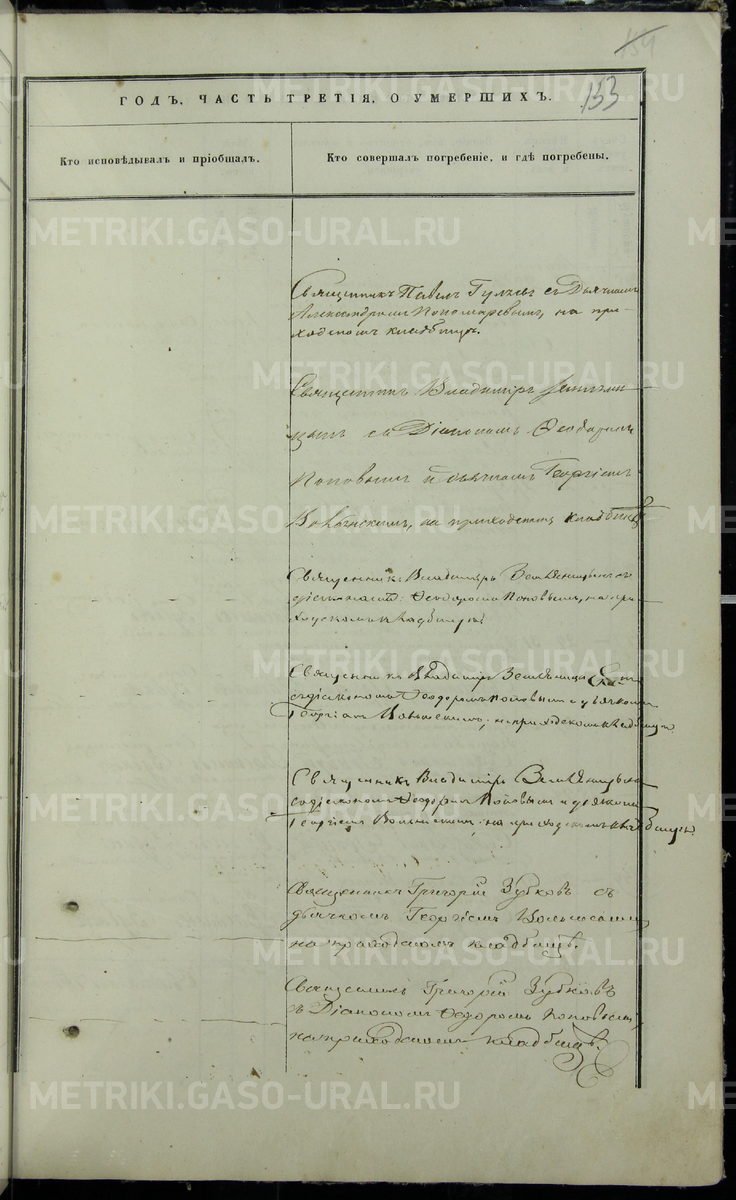 154
153
ГОДЪ, ЧАСТЬ ТРЕТІЯ, О УМЕРШИХЪ.
Кто исповѣдывалъ и пріобщалъ.
Кто совершалъ погребеніе, и гдѣ погребены.
Священникъ Павелъ съ Дьячкомъ
Александромъ Пономаревымъ, на при-
ходскомъ кладбищѣ.
Священникъ Владиміръ
съ Діакономъ Ѳеодоромъ
Поповымъ и дьячкомъ Георгіемъ
на приходскомъ кладбищѣ
Священникъ Владиміръ съ
Ѳеодоромъ Поповымъ, на при-
ходскомъ кладбищѣ
Священникъ Владиміръ
съ діакономъ Ѳеодоромъ Поповымъ и дьячкомъ
Георгіемъ на приходскомъ кладбищѣ
Священникъ Владиміръ
со діакономъ Ѳеодоромъ Поповымъ и дьячкомъ
Георгіемъ на приходскомъ кладбищѣ.
Священникъ Григорій Зубковъ съ
дьячкомъ Георгіемъ
на приходскомъ кладбищѣ.
Священникъ Григорій Зубковъ
съ Діакономъ Ѳедоромъ Поповымъ,
на приходскомъ кладбищѣ.
METRIKI.GASO-URAL.RU